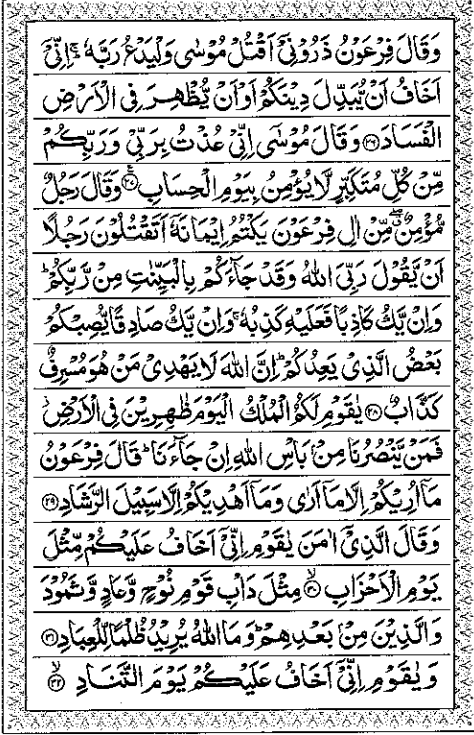 وَقَالَ فِرْعَوْنُ ذَرُوْنِیْۤ اَقْتُلْ مُوْسٰی وَلْیَدْعُ رَبَّهٗ ۚ اِنِّیْۤ
اَخَافُ اَنْ یُّبَدِّلَ دِیْنَكُمْ اَوْ اَنْ یُّظْهِرَ فِی الْاَرْضِ
الْفَسَادَ ﴿۲۶﴾ وَقَالَ مُوْسٰۤی اِنِّیْ عُذْتُ بِرَبِّیْ وَرَبِّكُمْ
مِّنْ كُلِّ مُتَكَبِّرٍ لَّا یُؤْمِنُ بِیَوْمِ الْحِسَابِ ﴿۲۷﴾ وَقَالَ رَجُلٌ
مُّؤْمِنٌ ۖ مِّنْ اٰلِ فِرْعَوْنَ یَكْتُمُ اِیْمَانَهٗۤ اَتَقْتُلُوْنَ رَجُلًا
اَنْ یَّقُوْلَ رَبِّیَ اللّٰهُ وَقَدْ جَآءَكُمْ بِالْبَیِّنٰتِ مِنْ رَّبِّكُمْ ؕ
وَاِنْ یَّكُ كَاذِبًا فَعَلَیْهِ كَذِبُهٗ ۚ وَاِنْ یَّكُ صَادِقًا یُّصِبْكُمْ
بَعْضُ الَّذِیْ یَعِدُكُمْ ؕ اِنَّ اللّٰهَ لَا یَهْدِیْ مَنْ هُوَ مُسْرِفٌ
كَذَّابٌ ﴿۲۸﴾ یٰقَوْمِ لَكُمُ الْمُلْكُ الْیَوْمَ ظٰهِرِیْنَ فِی الْاَرْضِ ؗ
فَمَنْ یَّنْصُرُنَا مِنْۢ بَاْسِ اللّٰهِ اِنْ جَآءَنَا ؕ قَالَ فِرْعَوْنُ
مَاۤ اُرِیْكُمْ اِلَّا مَاۤ اَرٰی وَمَاۤ اَهْدِیْكُمْ اِلَّا سَبِیْلَ الرَّشَادِ ﴿۲۹﴾
وَقَالَ الَّذِیْۤ اٰمَنَ یٰقَوْمِ اِنِّیْۤ اَخَافُ عَلَیْكُمْ مِّثْلَ
یَوْمِ الْاَحْزَابِ ۙ﴿۳۰﴾ مِثْلَ دَاْبِ قَوْمِ نُوْحٍ وَّعَادٍ وَّثَمُوْدَ
وَالَّذِیْنَ مِنْۢ بَعْدِهِمْ ؕ وَمَا اللّٰهُ یُرِیْدُ ظُلْمًا لِّلْعِبَادِ ﴿۳۱﴾
وَیٰقَوْمِ اِنِّیْۤ اَخَافُ عَلَیْكُمْ یَوْمَ التَّنَادِ ۙ﴿۳۲﴾